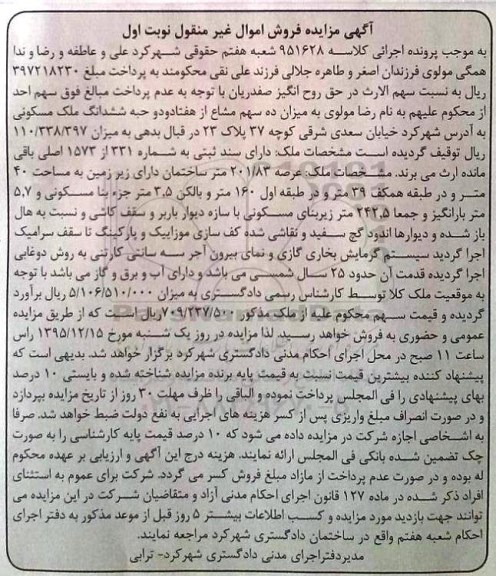 آگهی مزایده فروش اموال غیر منقول نوبت اول
به موجب پرونده اجرائی کلاسه ۹۵۱۶۲۸ شعبه هفتم حقوقی شهرکرد علی و عاطفه و رضا و ندا
همگی مولوی فرزندان اصغر و طاهره جلالی فرزند علی نقی محکومند به پرداخت مبلغ ۳۹۷۲۱۸۲۳۰
ریال به نسبت سهم الارث در حق روح انگیز صفدریان با توجه به عدم پرداخت مبالغ فوق سهم احد
از محکوم علیهم به نام رضا مولوی به میزان ده سهم مشاع از هفتادودو حبه ششدانگ ملک مسکونی
به آدرس شهرکرد خیابان سعدی شرقی کوچه ۳۷ پلاک ۲۳ در قبال بدهی به میزان ۱۱۰/۳۳۸/۳۹۷
ریال توقیف گردیده است مشخصات ملک: دارای سند ثبتی به شماره ۳۳۱ از ۱۵۷۳ اصلی باقی
مانده ارث می برند. مشخصات ملک: عرصه ۲۰۱/۸۳ متر ساختمان دارای زیر زمین به مساحت ۴۰
متر و در طبقه همکف ۳۹ متر و در طبقه اول ۱۶۰ متر و بالکن ۳.۵ متر جزء بنا مسکونی و ۵.۷
متر بارانگیز و جمعا ۲۴۲,۵ متر زیربنای مسکونی با سازه دیوار باربر و سقف کاشی و نسبت به هال
یاز شده و دیوارها اندود گچ سفید و نقاشی شده کف سازی موزاییک و پارکینگ تا سقف سرامیک
اجرا گردید سیستم گرمایش بخاری گازی و نمای بیرون آجر سه سانتی کارتنی به روش دوغابی
اجرا گردیده قدمت آن حدود ۲۵ سال شمسی می باشد و دارای آب و برق و گاز می باشد با توجه
به موقعیت ملک کلا توسط کارشناس رسمی دادگستری به میزان ۵/۱۰۶/۵۱۰/۰۰۰ ریال برآورد
گردیده و قیمت سهم محکوم علیه از ملک مذکور ۷۰۹/۲۳۷/۵۰۰ ریال است که از طریق مزایده
عمومی و حضوری به فروش خواهد رسید. لذا مزایده در روز یک شنبه مورخ ۱۳۹۵/۱۲/۱۵ راس
ساعت ۱۱ صبح در محل اجرای احکام مدنی دادگستری شهرکرد برگزار خواهد شد. بدیهی است که
پیشنهاد کننده بیشترین قیمت نسبت به قیمت پایه برنده مزایده شناخته شده و بایستی ۱۰ درصد
بهای پیشنهادی را فی المجلس پرداخت نموده و الباقی را ظرف مهلت ۳۰ روز از تاریخ مزایده بپردازد
و در صورت انصراف مبلغ واریزی پس از کسر هزینه های اجرایی به نفع دولت ضبط خواهد شد. صرفا
به اشخاصی اجازه شرکت در مزایده داده می شود که ۱۰ درصد قیمت پایه کارشناسی را به صورت
چک تضمین شده بانکی فی المجلس ارائه نمایند. هزینه درج این آگهی و ارزیابی بر عهده محکوم
له بوده و در صورت عدم پرداخت از مازاد مبلغ فروش کسر می گردد. شرکت برای عموم به استثنای
افراد ذکر شده در ماده ۱۲۷ قانون اجرای احکام مدنی آزاد و متقاضیان شرکت در این مزایده می
توانند جهت بازدید مورد مزایده و کسب اطلاعات بیشتر ۵ روز قبل از موعد مذکور به دفتر اجرای
احکام شعبه هفتم واقع در ساختمان دادگستری شهرکرد مراجعه نمایند.
مدیردفتراجرای مدنی دادگستری شهرکرد- ترابی